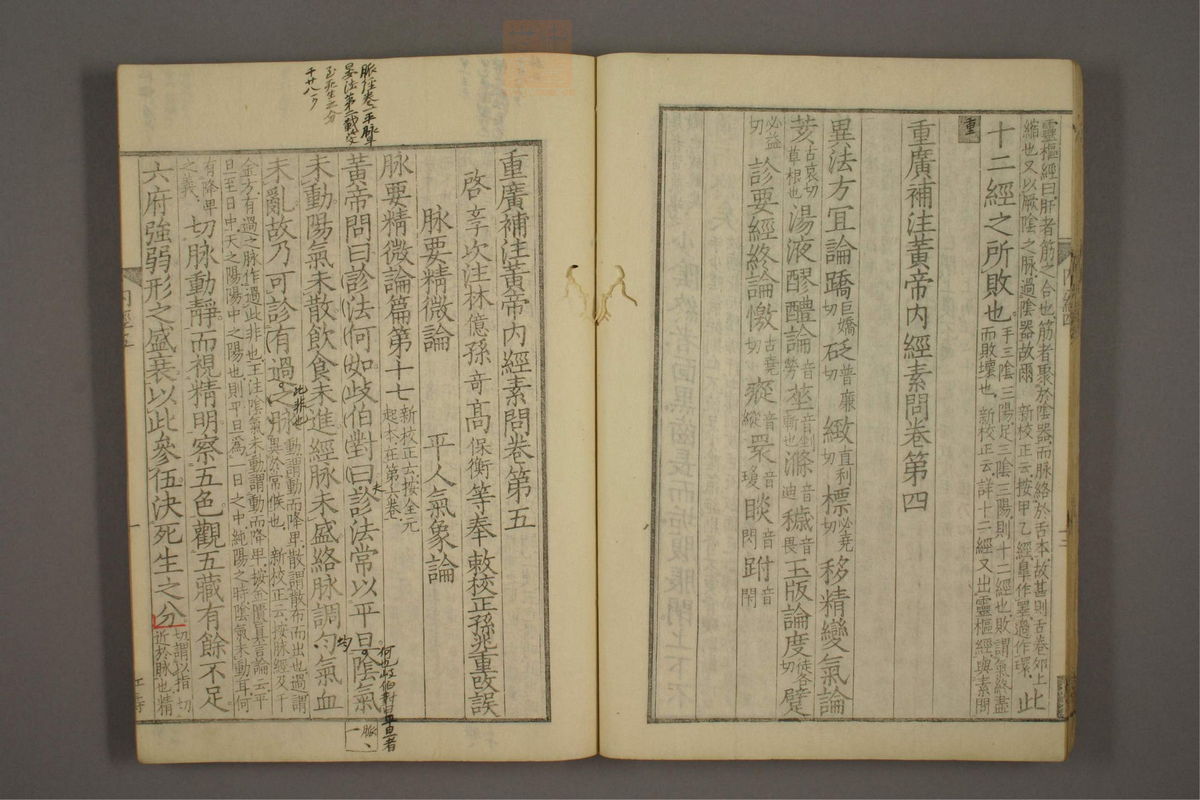 靈樞經曰肝者筋之合也筋者聚於陰器而脉絡於舌本故甚則舌卷卵上
縮也又以厥陰之脉過陰器故爾 新校正云按甲乙經皐作睪邉作環 此
十二經之所敗也 手三陰三陽足三陰三陽則十二經也敗謂氣終盡
而敗壞也 新校正云詳十二經又出靈樞經與素問
重
重廣補注黃帝內經素問卷第四
異法方宜論 蹻 巨嬌切 砭 普廉切 緻 直利切 標 必堯切 移精變氣論
荄 古哀切草根也 湯液醪醴論 莝 音剉斬也 滌 音迪 穢 音畏 玉版論 度 徒各切 躄
必益切 診要經終論 憿 古堯切 瘲 音縱 睘 音瓊 睒 音閃 跗 音
重廣補注黃帝內經素問卷第五
啓 玄子次注林億孫奇高保衡等奉敕校正孫兆重改誤
脉要精微論 平人氣象論
脉要精微論篇第十七 新校正云按全元
起本在第六卷
黃帝問曰診法何如歧伯對曰診法常以平旦陰氣
未動陽氣未散飲食未進經脉未盛絡脉調勻氣血
未亂故乃可診有過之脉 動謂動而降卑散謂散布而出也過謂
異於常候也 新校正云按脉經及千
金方有過之脉作過此非也王注陰氣未動謂動而降卑按金匱真言論云平
旦至日中天之陽陽中之陽也則平旦爲一日之中純陽之時陰氣未動耳何
有降卑
之義 切脉動靜而視精明察五色觀五藏有餘不足
六府強弱形之盛衰以此參伍決死生之分 切謂以指切
近於脉也精
內經五
一
脉經卷一平脉
晏法第二載
死生之分
千廿八
此非也
均
何也歧伯對曰平旦者
脉